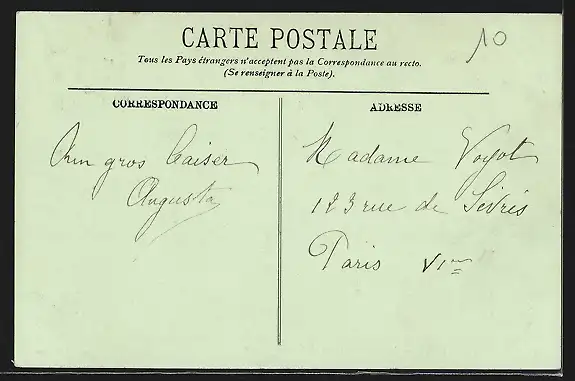 CARTE POSTALE
10
Tous les Pays étrangers n'acceptent pas la Correspondance au recto.
(Se renseigner à la Poste).
CORRESPONDANCE
Un gros baiser
Augusta
ADRESSE
Madame Voyot
123 rue de Sèvres
Paris VIme